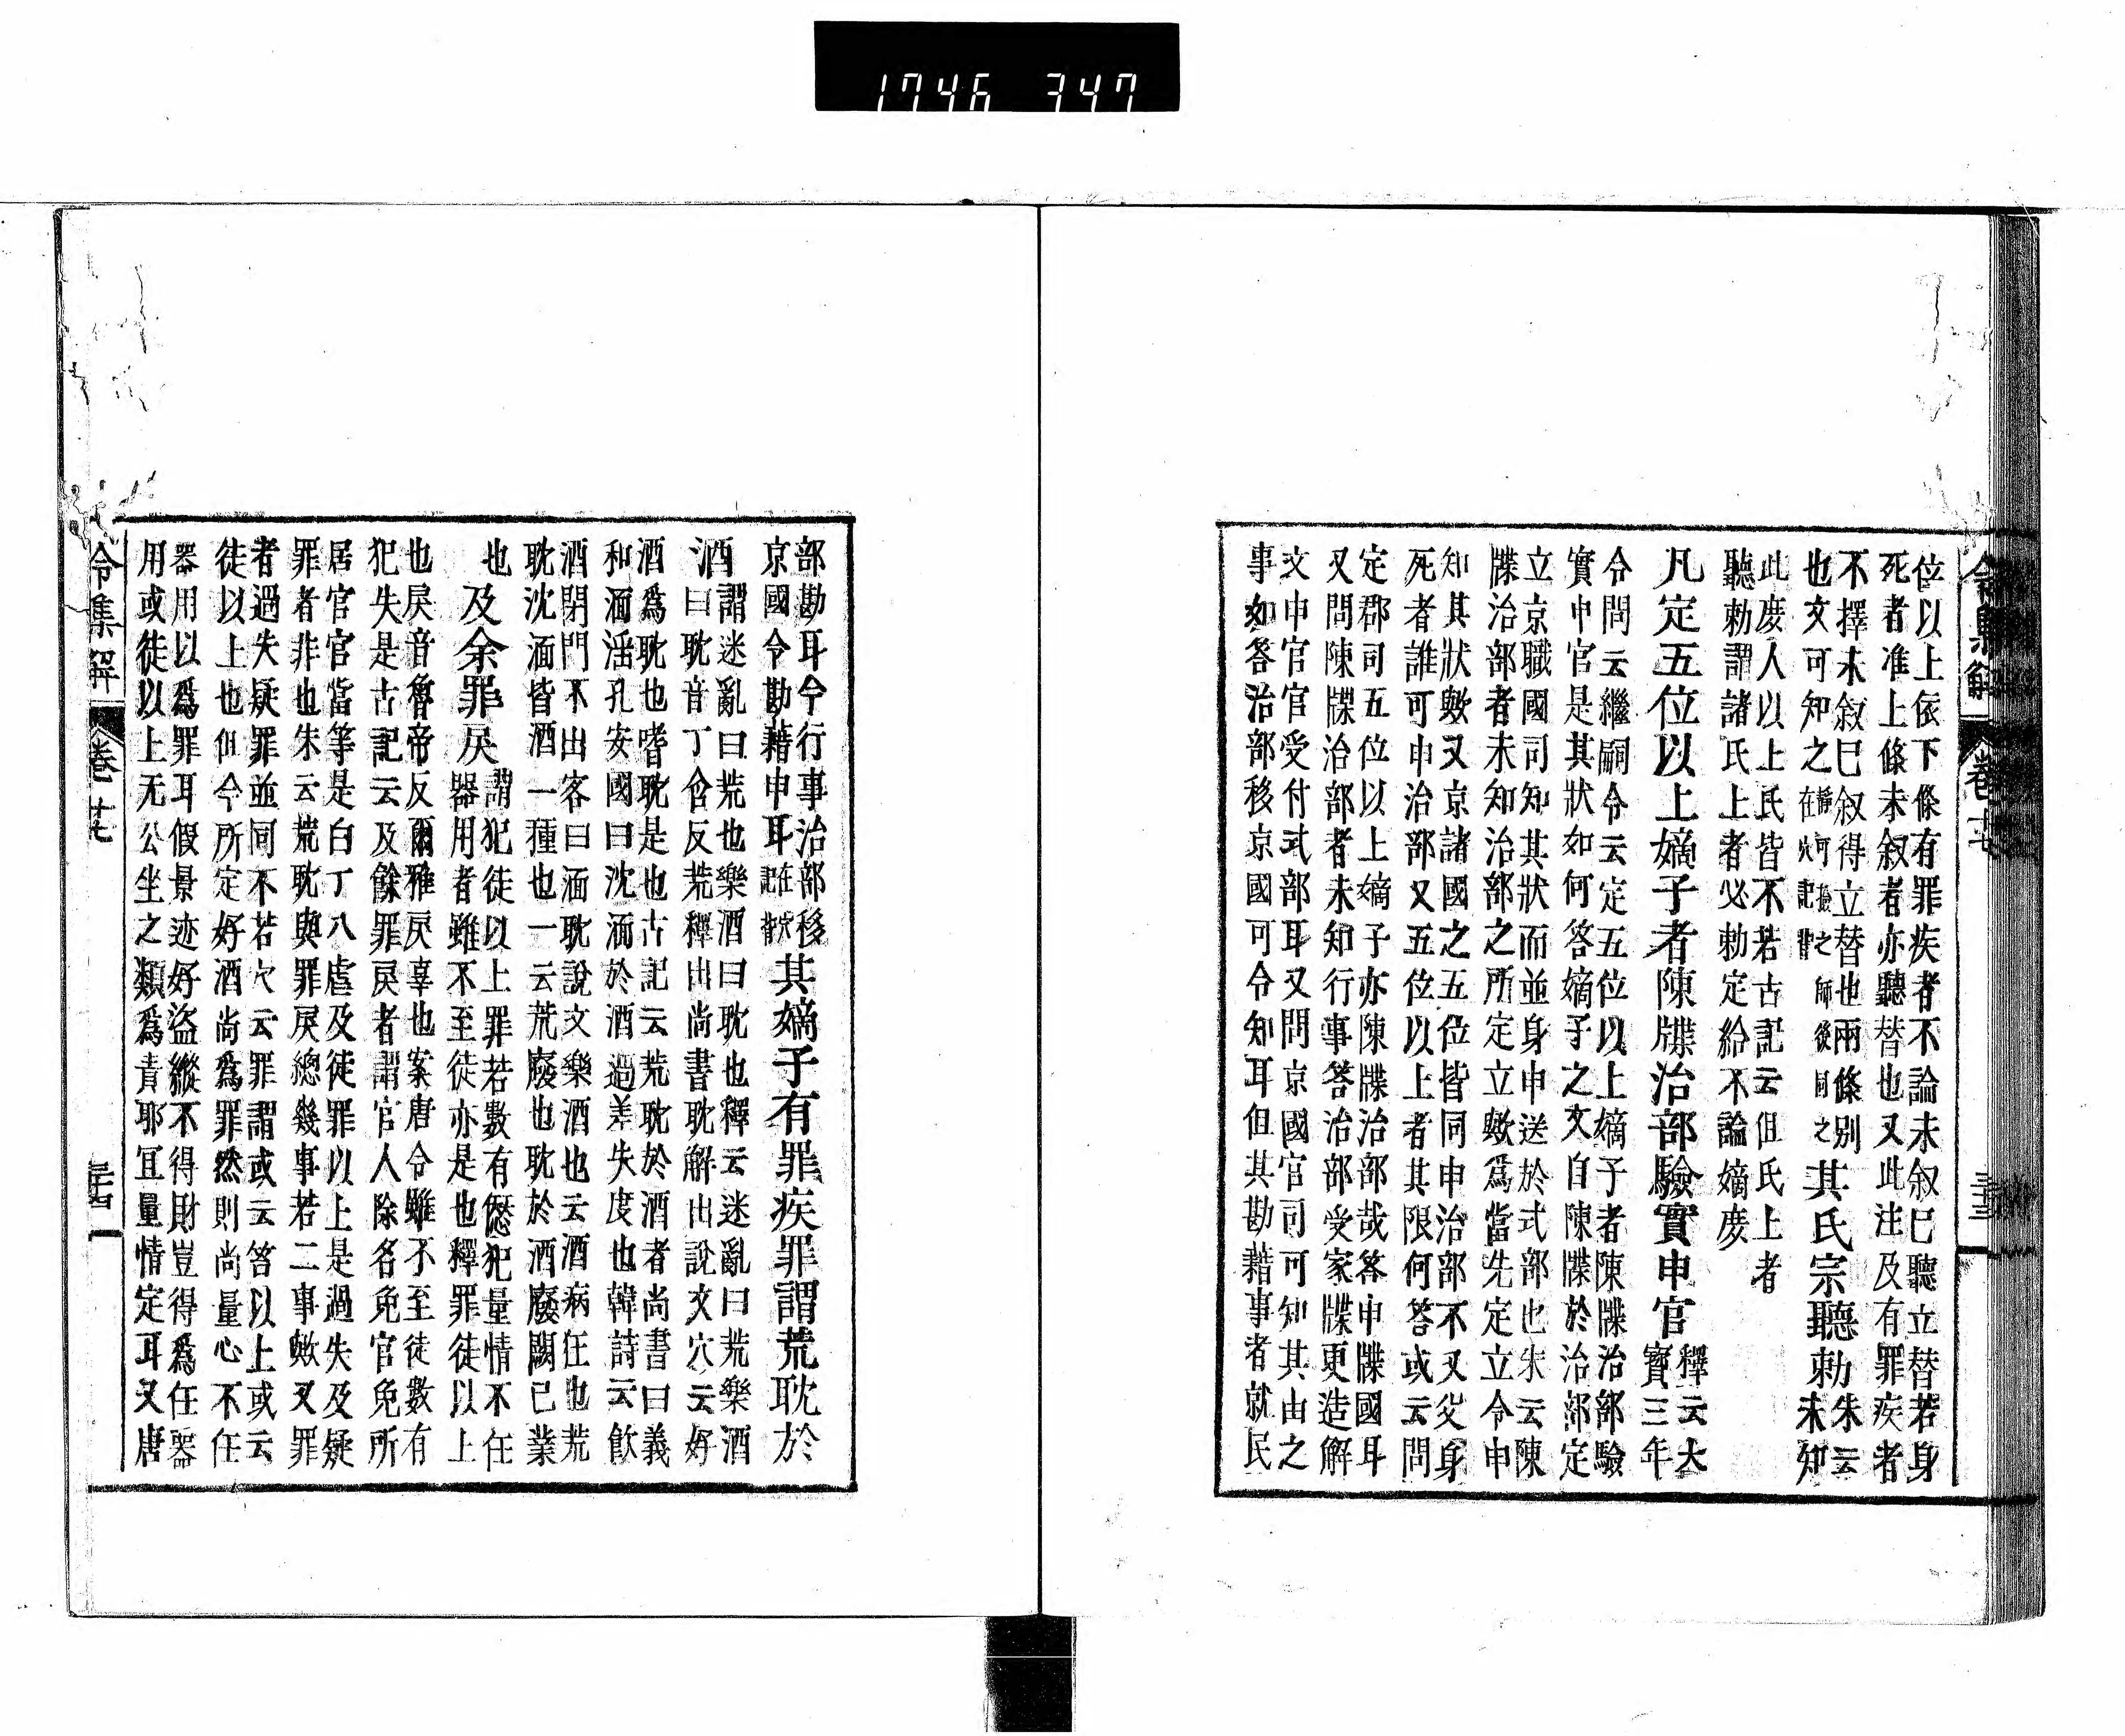 1746 347
位以上依下條有罪疾者不論未叙巳聽立替若身
死者准上條未叙者亦聽替也又此注及有罪疾者
不擇未叙巳叙得立替也兩條別
也文可知之
其氏宗聽勅
朱云
未知
此庻人以上氏皆不若古記云但氏上者
聽勅謂諸氏上者必勅定給不論嫡庻
凡定五位以上嫡子者陳牒治部驗實申官
釋云大
寳三年
令問云繼嗣令云定五位以上嫡子者陳牒治部驗
實申官是其狀如何答嫡子之文自陳牒於治部定
立京職國司知其狀而並身申送於式部也朱云陳
牒治部者未知治部之所定立歟爲當先定立令申
知其狀歟又京諸國之五位皆同申治部不又父身
死者誰可申治部又五位以上者其限何答或云問
定郡司五位以上嫡子亦陳牒治部哉答申牒國耳
又問陳牒治部者未知行事答治部受家牒更造解
文申官官受付式部耳又問京國官司可知其由之
事如答治部移京國可令知耳但其勘藉事者就民
令集解 卷廿七
部勘耳今行事治部移
京國令勘藉申耳
其嫡子有罪疾罪謂荒耽於
酒
謂迷亂曰荒也樂酒曰耽也釋云迷亂曰荒樂酒
曰耽音丁含反荒釋出尚書耽解出說文穴云好
酒爲耽也嗜耽是也古記云荒耽於酒者尚書曰義
和湎淫孔安國曰沈湎於酒過差失度也韓詩云飮
酒閉門不出客曰湎耽說文樂酒也云酒病狂也荒
耽沈湎皆酒一種也一云荒廢也耽於酒廢闕已業
也
及余罪戾
謂犯徒以上罪若數有愆犯量情不任
器用者雖不至徒亦是也釋罪徒以上
也戾音魯帝反爾雅戾辠也案唐令雖不至徒數有
犯失是古記云及餘罪戾者謂官人除名免官免所
居官官當等是白丁八虐及徒罪以上是過失及疑
罪者非也朱云荒耽與罪戾總幾事若二事歟又罪
者過失疑罪並同不若穴云罪謂或云笞以上或云
徒以上也但今所定好酒尚爲罪然則尚量心不任
器用以爲罪耳假景迹好盜縱不得財豈得爲任器
用或徒以上无公坐之類爲責耶冝量情定耳又唐
令集解 卷廿七